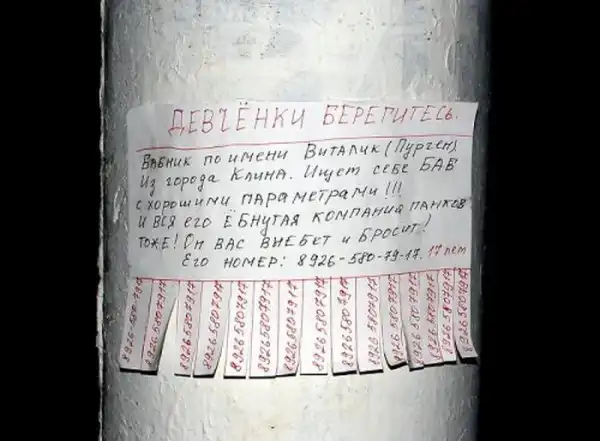 ДЕВЧЁНКИ БЕРЕГИТЕСЬ.
БАБНИК ПО ИМЕНИ ВИТАЛИК (ПУРГЕН)
ИЗ ГОРОДА КЛИНА. ИЩЕТ СЕБЕ БАБ
С ХОРОШИМИ ПАРАМЕТРАМИ!!!
И ВСЯ ЕГО ЁБНУТАЯ КОМПАНИЯ ПАНКОВ
ТОЖЕ! ОН ВАС ВЫЕБЕТ И БРОСИТ!
ЕГО НОМЕР: 8926-580-79-17. 17 лет
8926-580-7917
89265807917
89265807917
89265807917
89265807917
89265807917
89265807917
89265807917
89265807917
89265807917
89265807917
89265807917
89265807917
89265807917